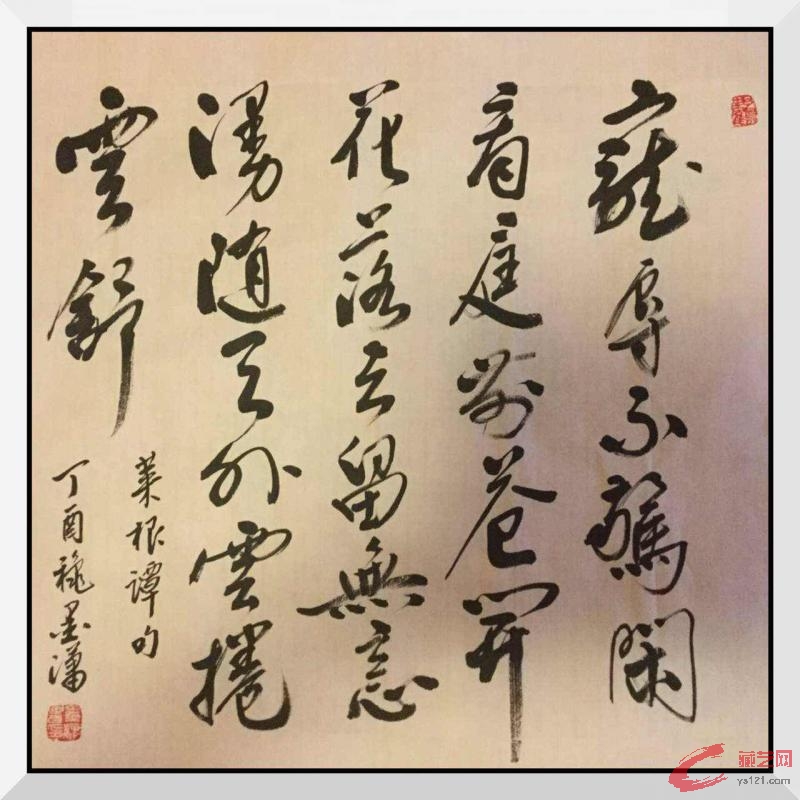 寵辱不驚閑
看庭前花開
花落去留無意
漫随天外雲捲
雲舒
菜根譚句
丁酉穐墨潇
藏艺网
ys121.com